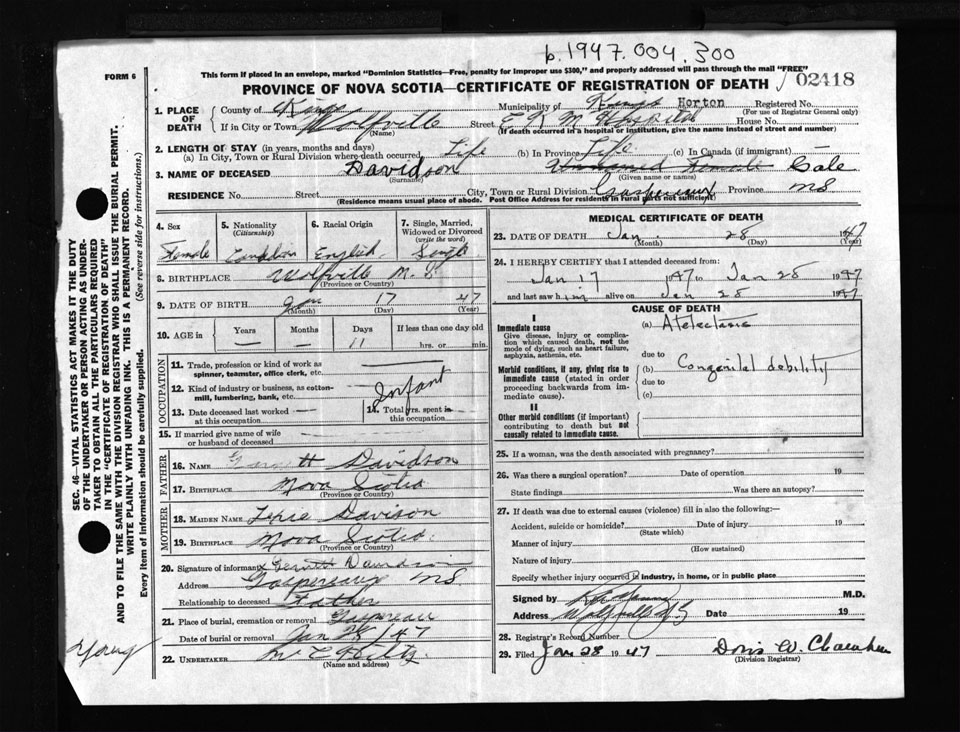 b.1947.004.300
FORM 6
This form if placed in an envelope, marked "Dominion Statistics—Free, penalty for improper use $300," and properly addressed will pass through the mail "FREE"
PROVINCE OF NOVA SCOTIA—CERTIFICATE OF REGISTRATION OF DEATH
02418
1. PLACE OF DEATH
County of Kings
Municipality of Kings Horton
Registered No.
(For use of Registrar General only)
If in City or Town Wolfville
(Name)
Street E K M Hospital
House No.
(If death occurred in a hospital or institution, give the name instead of street and number)
2. LENGTH OF STAY (in years, months and days)
(a) In City, Town or Rural Division where death occurred Life
(b) In Province Life
(c) In Canada (if immigrant) —
3. NAME OF DECEASED Davidson
(Surname)
Unnamed Female Gale
(Given name or names)
RESIDENCE No. Street
City, Town or Rural Division Gaspereaux Province NS
(Residence means usual place of abode. Post Office Address for residents in rural parts not sufficient)
4. Sex
Female
5. Nationality
(Citizenship)
Canadian
6. Racial Origin
English
7. Single, Married, Widowed or Divorced
(write the word)
Single
8. BIRTHPLACE Wolfville N.S.
(Province or Country)
9. DATE OF BIRTH Jan 17 47
(Month) (Day) (Year)
10. AGE in
Years Months Days
— — 11
If less than one day old
hrs. or min.
OCCUPATION
11. Trade, profession or kind of work as spinner, teamster, office clerk, etc.
12. Kind of industry or business, as cotton-mill, lumbering, bank, etc.
Infant
13. Date deceased last worked at this occupation
14. Total yrs. spent in this occupation
15. If married give name of wife or husband of deceased
FATHER
16. NAME Garnett Davidson
17. BIRTHPLACE Nova Scotia
(Province or Country)
MOTHER
18. MAIDEN NAME Davison
19. BIRTHPLACE Nova Scotia
(Province or Country)
20. Signature of informant Davidson
Address Gaspereaux NS
Relationship to deceased Father
21. Place of burial, cremation or removal Gaspereau
Date of burial or removal Jan 28/47
22. UNDERTAKER
(Name and address)
MEDICAL CERTIFICATE OF DEATH
23. DATE OF DEATH Jan. 28 1947
(Month) (Day) (Year)
24. I HEREBY CERTIFY that I attended deceased from:
Jan 17 1947 to Jan 28 1947
and last saw him alive on Jan 28 1947
CAUSE OF DEATH
I
Immediate cause
Give disease, injury or complication which caused death, not the mode of dying, such as heart failure, asphyxia, asthenia, etc.
(a) Atelectasis
due to
Morbid conditions, if any, giving rise to immediate cause (stated in order proceeding backwards from immediate cause).
(b) Congenital debility
due to
(c)
II
Other morbid conditions (if important) contributing to death but not causally related to immediate cause.
25. If a woman, was the death associated with pregnancy?
26. Was there a surgical operation? Date of operation 19
State findings Was there an autopsy?
27. If death was due to external causes (violence) fill in also the following:—
Accident, suicide or homicide? Date of injury 19
(State which)
Manner of injury
(How sustained)
Nature of injury
Specify whether injury occurred in industry, in home, or in public place
Signed by M.D.
Address Wolfville NS Date 19
28. Registrar's Record Number
29. Filed Jan 28 1947 Doris W.
(Division Registrar)
Young
SEC. 46—VITAL STATISTICS ACT MAKES IT THE DUTY
OF THE UNDERTAKER OR PERSON ACTING AS UNDER-
TAKER TO OBTAIN ALL THE PARTICULARS REQUIRED
IN THE "CERTIFICATE OF REGISTRATION OF DEATH"
AND TO FILE THE SAME WITH THE DIVISION REGISTRAR WHO SHALL ISSUE THE BURIAL PERMIT.
WRITE PLAINLY WITH UNFADING INK. THIS IS A PERMANENT RECORD.
Every item of information should be carefully supplied. (See reverse side for instructions.)